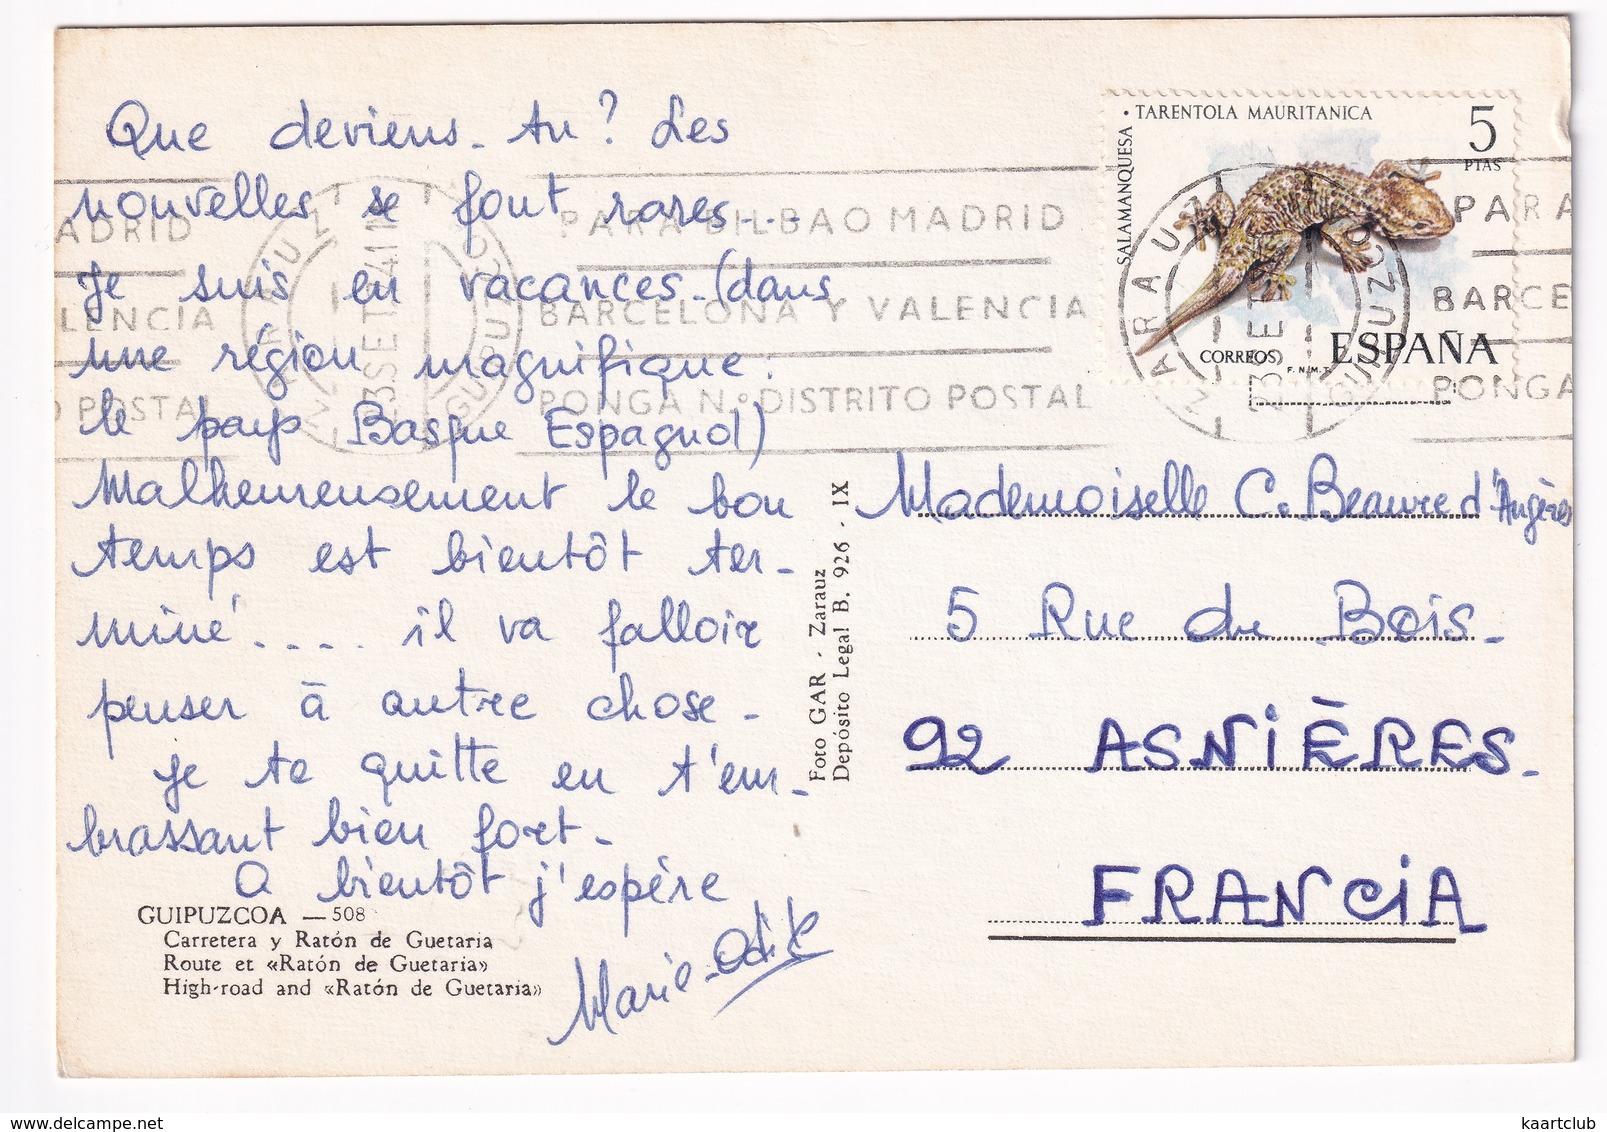 Que deviens-tu? Les
nouvelles se font rares...
Je suis en vacances (dans
une région magnifique:
le pays Basque Espagnol)
Malheureusement le bon
temps est bientôt ter-
miné.... il va falloir
penser à autre chose.
Je te quitte en t'em-
brassant bien fort.
A bientôt j'espère
Marie-Odile
GUIPUZCOA — 508
Carretera y Ratón de Guetaria
Route et «Ratón de Guetaria»
High-road and «Ratón de Guetaria»
Foto GAR - Zarauz
Depósito Legal B. 926 - IX
SALAMANQUESA • TARENTOLA MAURITANICA
5
PTAS
CORREOS
ESPAÑA
F.N.M.T.
PARA BILBAO MADRID
BARCELONA Y VALENCIA
PONGA Nº DISTRITO POSTAL
ADRID
LENCIA
O POSTAL
ZARAUZ
GUIPUZCOA
23 SET
PARA
BARCE
PONGA
ZARAUZ
GUIPUZCO
23 SET
Mademoiselle C. Beauvre d'Angères
5 Rue du Bois.
92 ASNIÈRES.
FRANCIA
delcampe.net
kaartclub